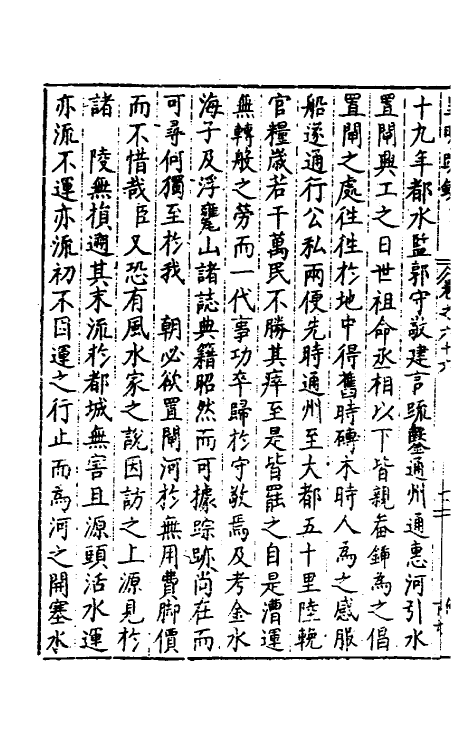 十九年都水監郭守敬建言疏鑿通州通惠河引水
置閘興工之日世祖命丞相以下皆親畚鍤為之倡
置閘之處往往於地中得舊時磚木時人為之感服
船遂通行公私兩便先時通州至大都五十里陸輓
官糧歲若干萬民不勝其瘁至是皆罷之自是漕運
無轉般之勞而一代事功卒歸於守敬焉及考金水
海子及浮甕山諸誌典籍昭然而可據踪跡尚在而
可尋何獨至於我　朝必欲置閘河於無用費脚價
而不惜哉臣又恐有風水家之說因訪之上源見於
諸　陵無損遡其末流於都城無害且源頭活水運
亦流不運亦流初不因運之行止而為河之開塞水
卷之六十六